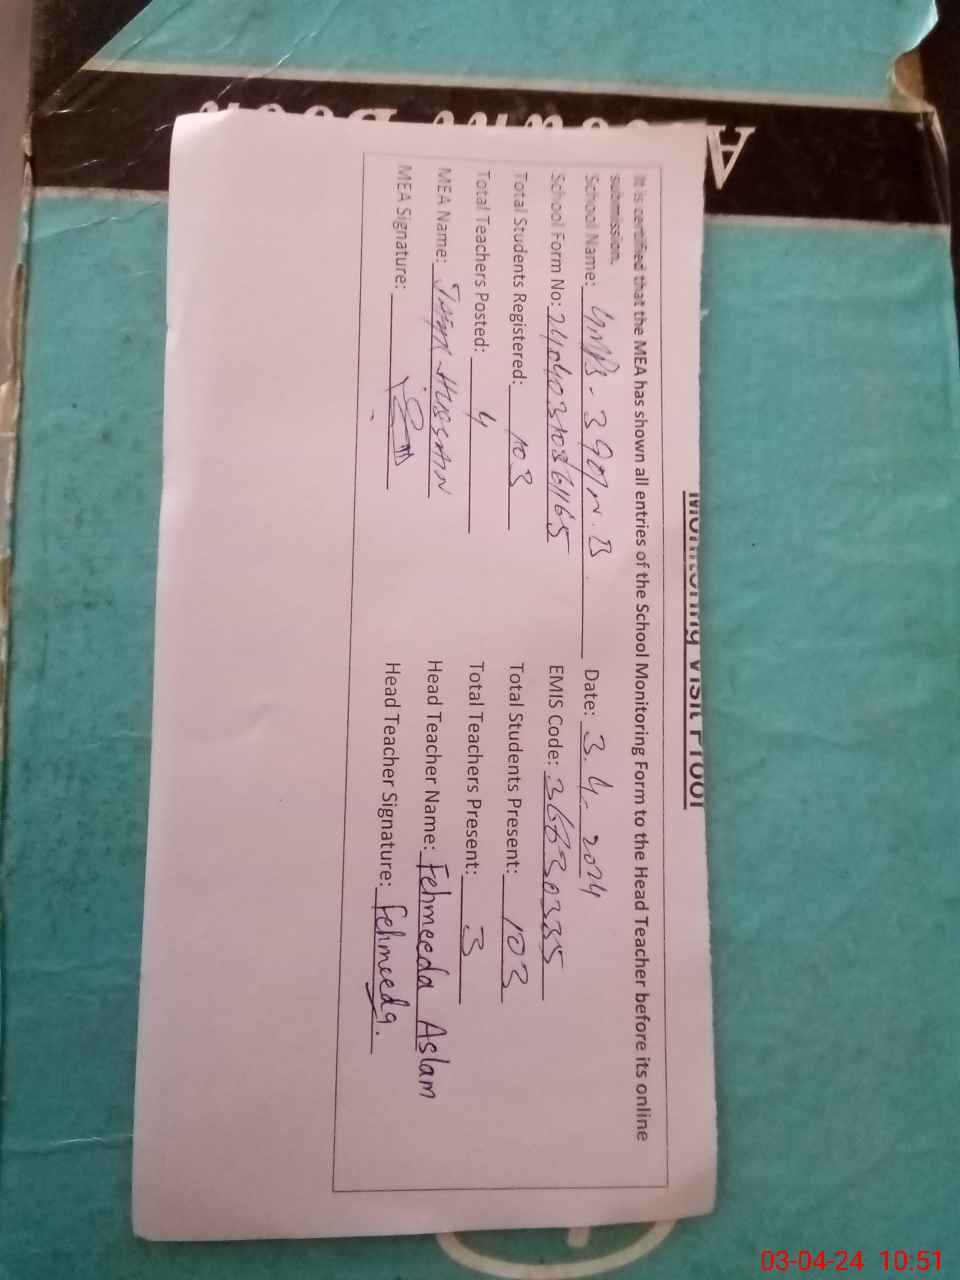 Account Book
Monitoring Visit Proof
It is certified that the MEA has shown all entries of the School Monitoring Form to the Head Teacher before its online
submission.
School Name: Date: 3.4.2024
School Form No: EMIS Code:
Total Students Registered: 103 Total Students Present: 103
Total Teachers Posted: 4 Total Teachers Present: 3
MEA Name: Hussain Head Teacher Name: Fehmeeda Aslam
MEA Signature: Head Teacher Signature: Fehmeeda.
03-04-24 10:51